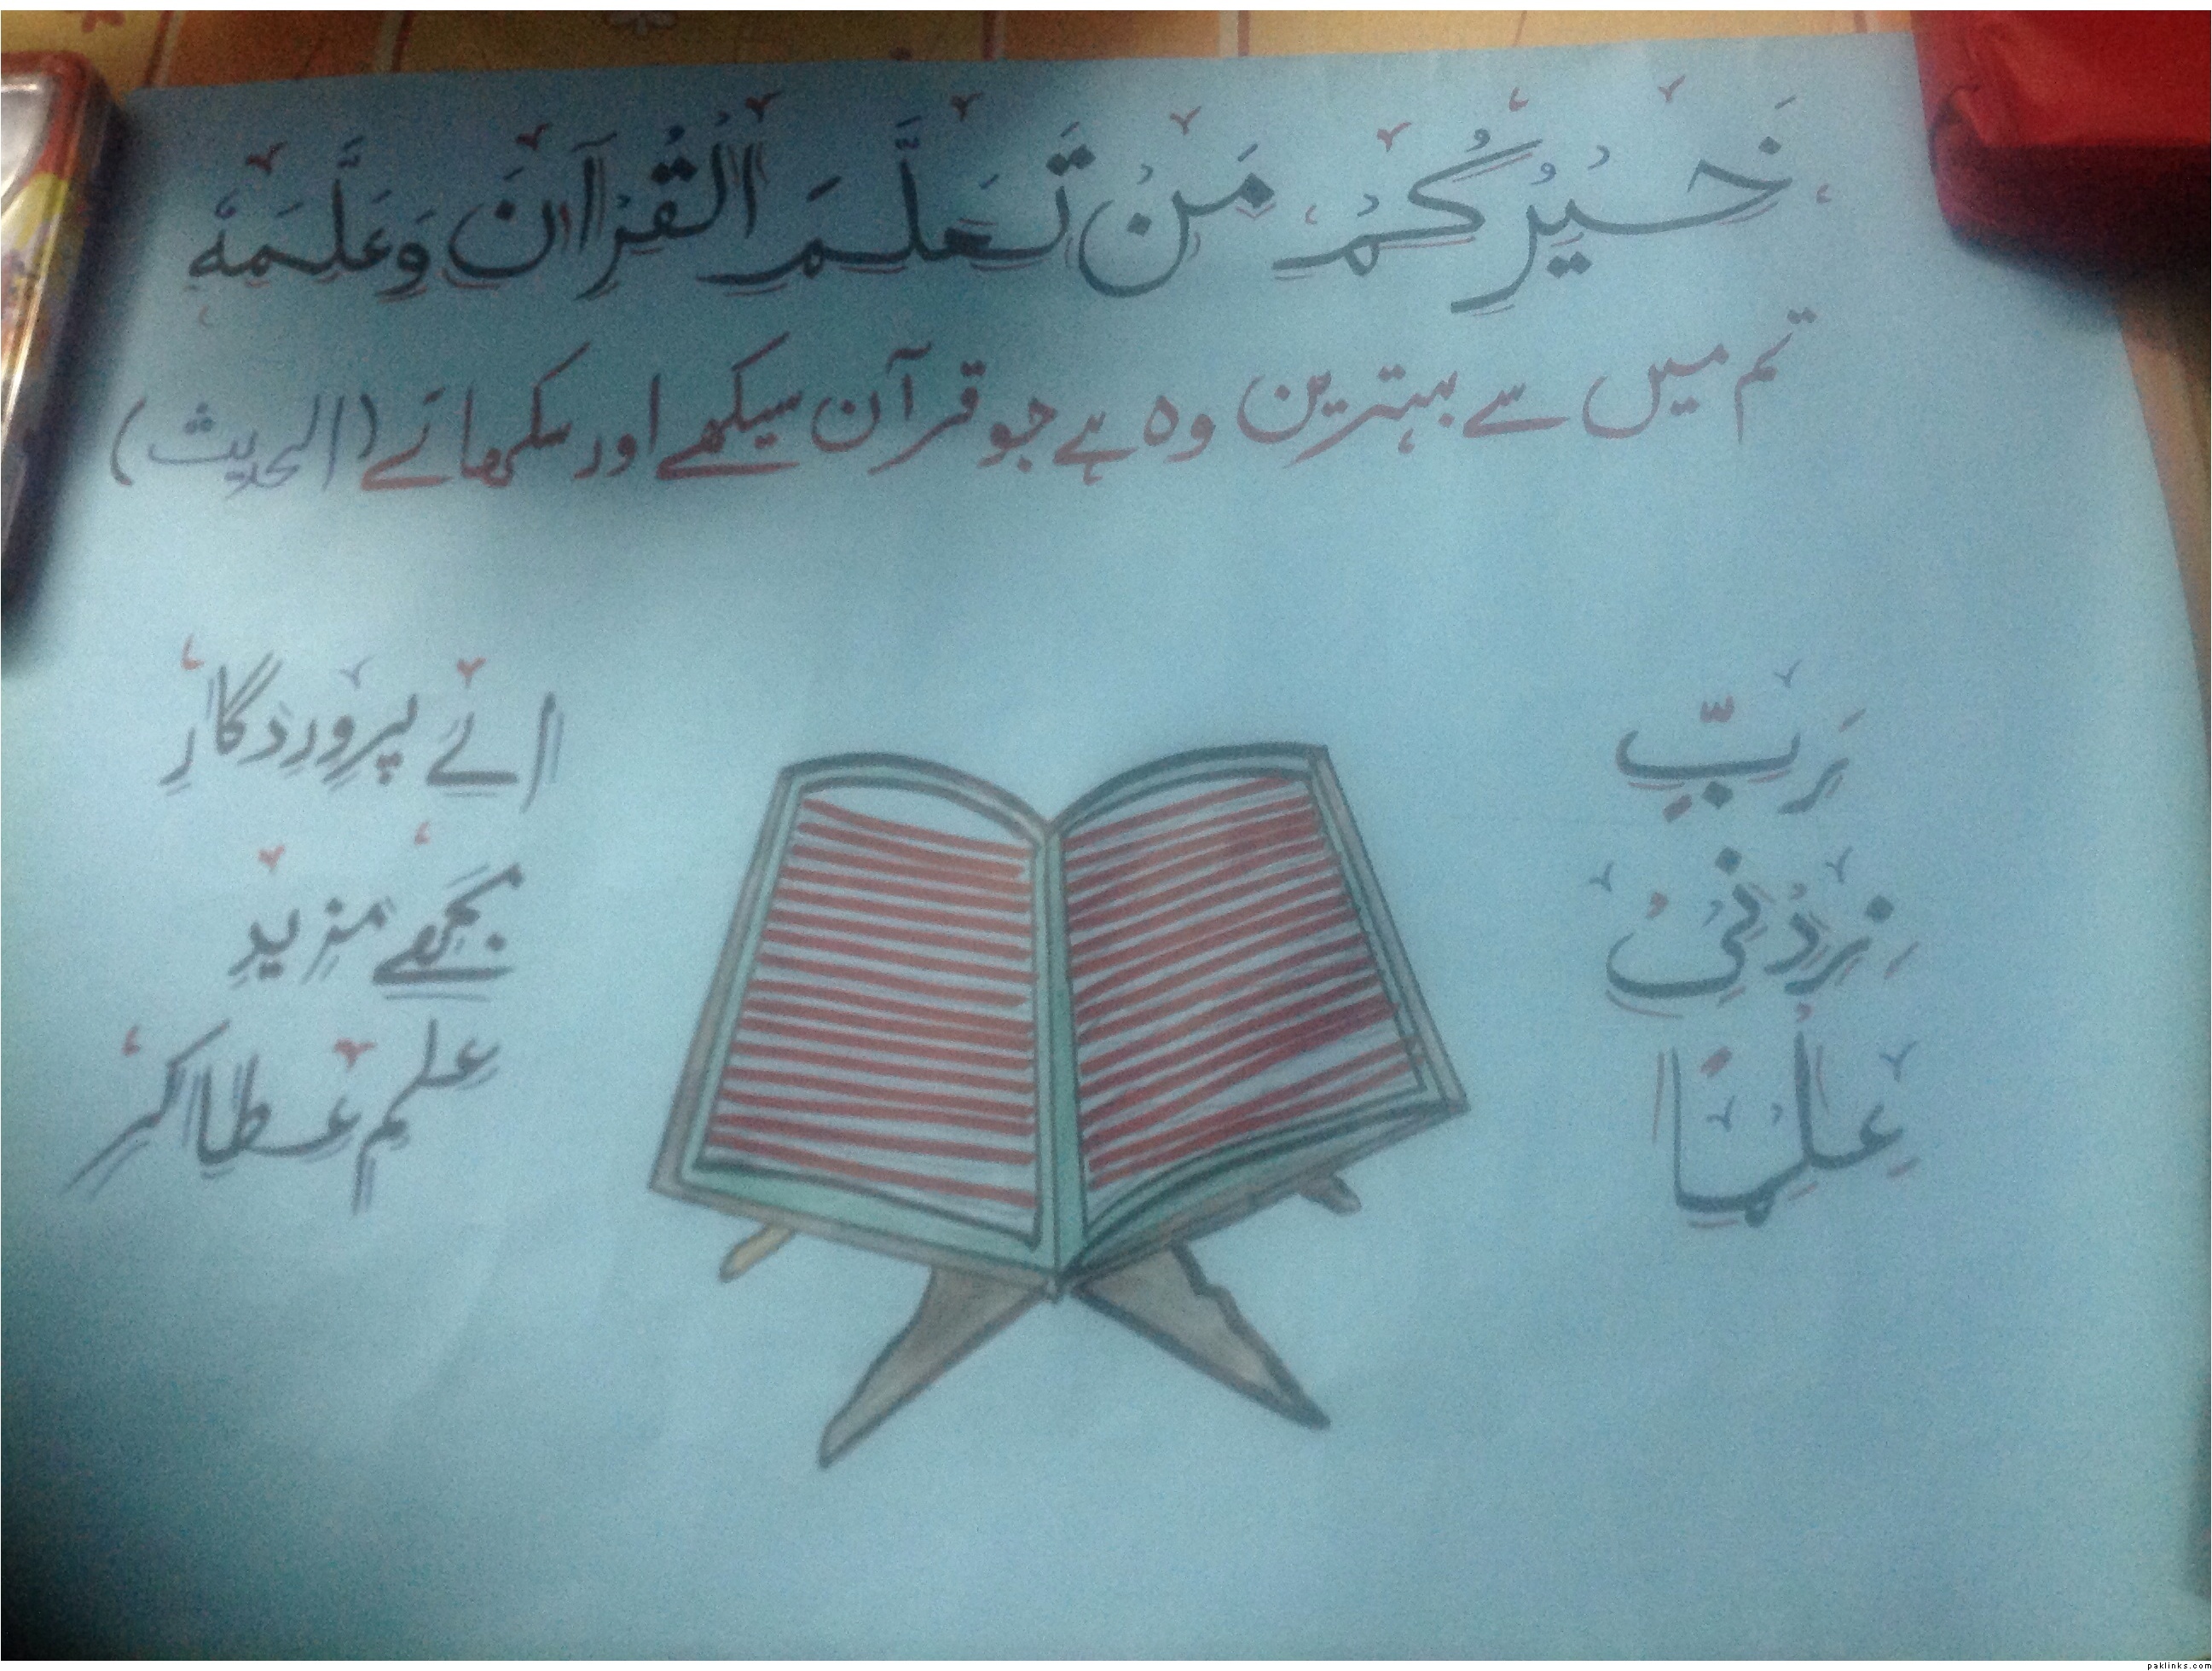 خَيْرُكُمْ مَنْ تَعَلَّمَ الْقُرْآنَ وَعَلَّمَهٗ
تم میں سے بہترین وہ ہے جو قرآن سیکھے اور سکھائے (الحدیث)
رَبِّ
زِدْنِیْ
عِلْمًا
اے پروردگار
مجھے مزید
علم عطا کر
paklinks.com